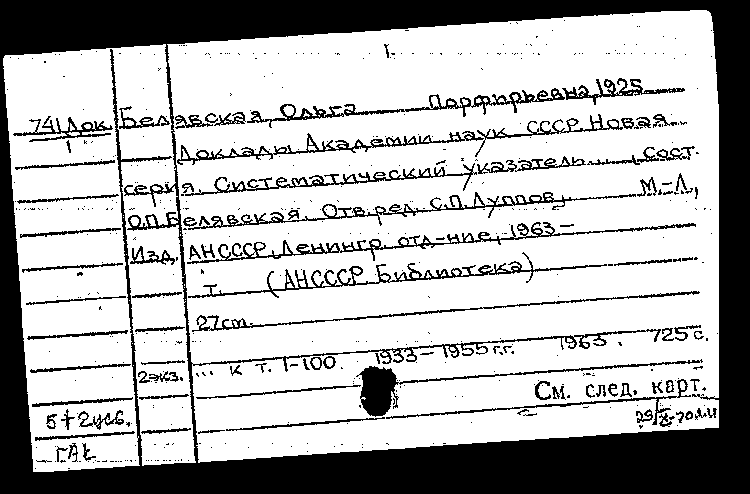 I.
741Док. Белявская, Ольга Порфирьевна, 1925
1 Доклады Академии наук СССР. Новая
серия. Систематический указатель..., Сост.
О.П.Белявская. Отв.ред. С.П.Луппов, М.-Л.,
Изд. АНСССР, Ленингр. отд-ние, 1963-
т. (АНСССР. Библиотека)
27cm.
2экз. ... к т. 1-100. 1933-1955г.г. 1963. 725 с.
См. след. карт.
5+2усб.